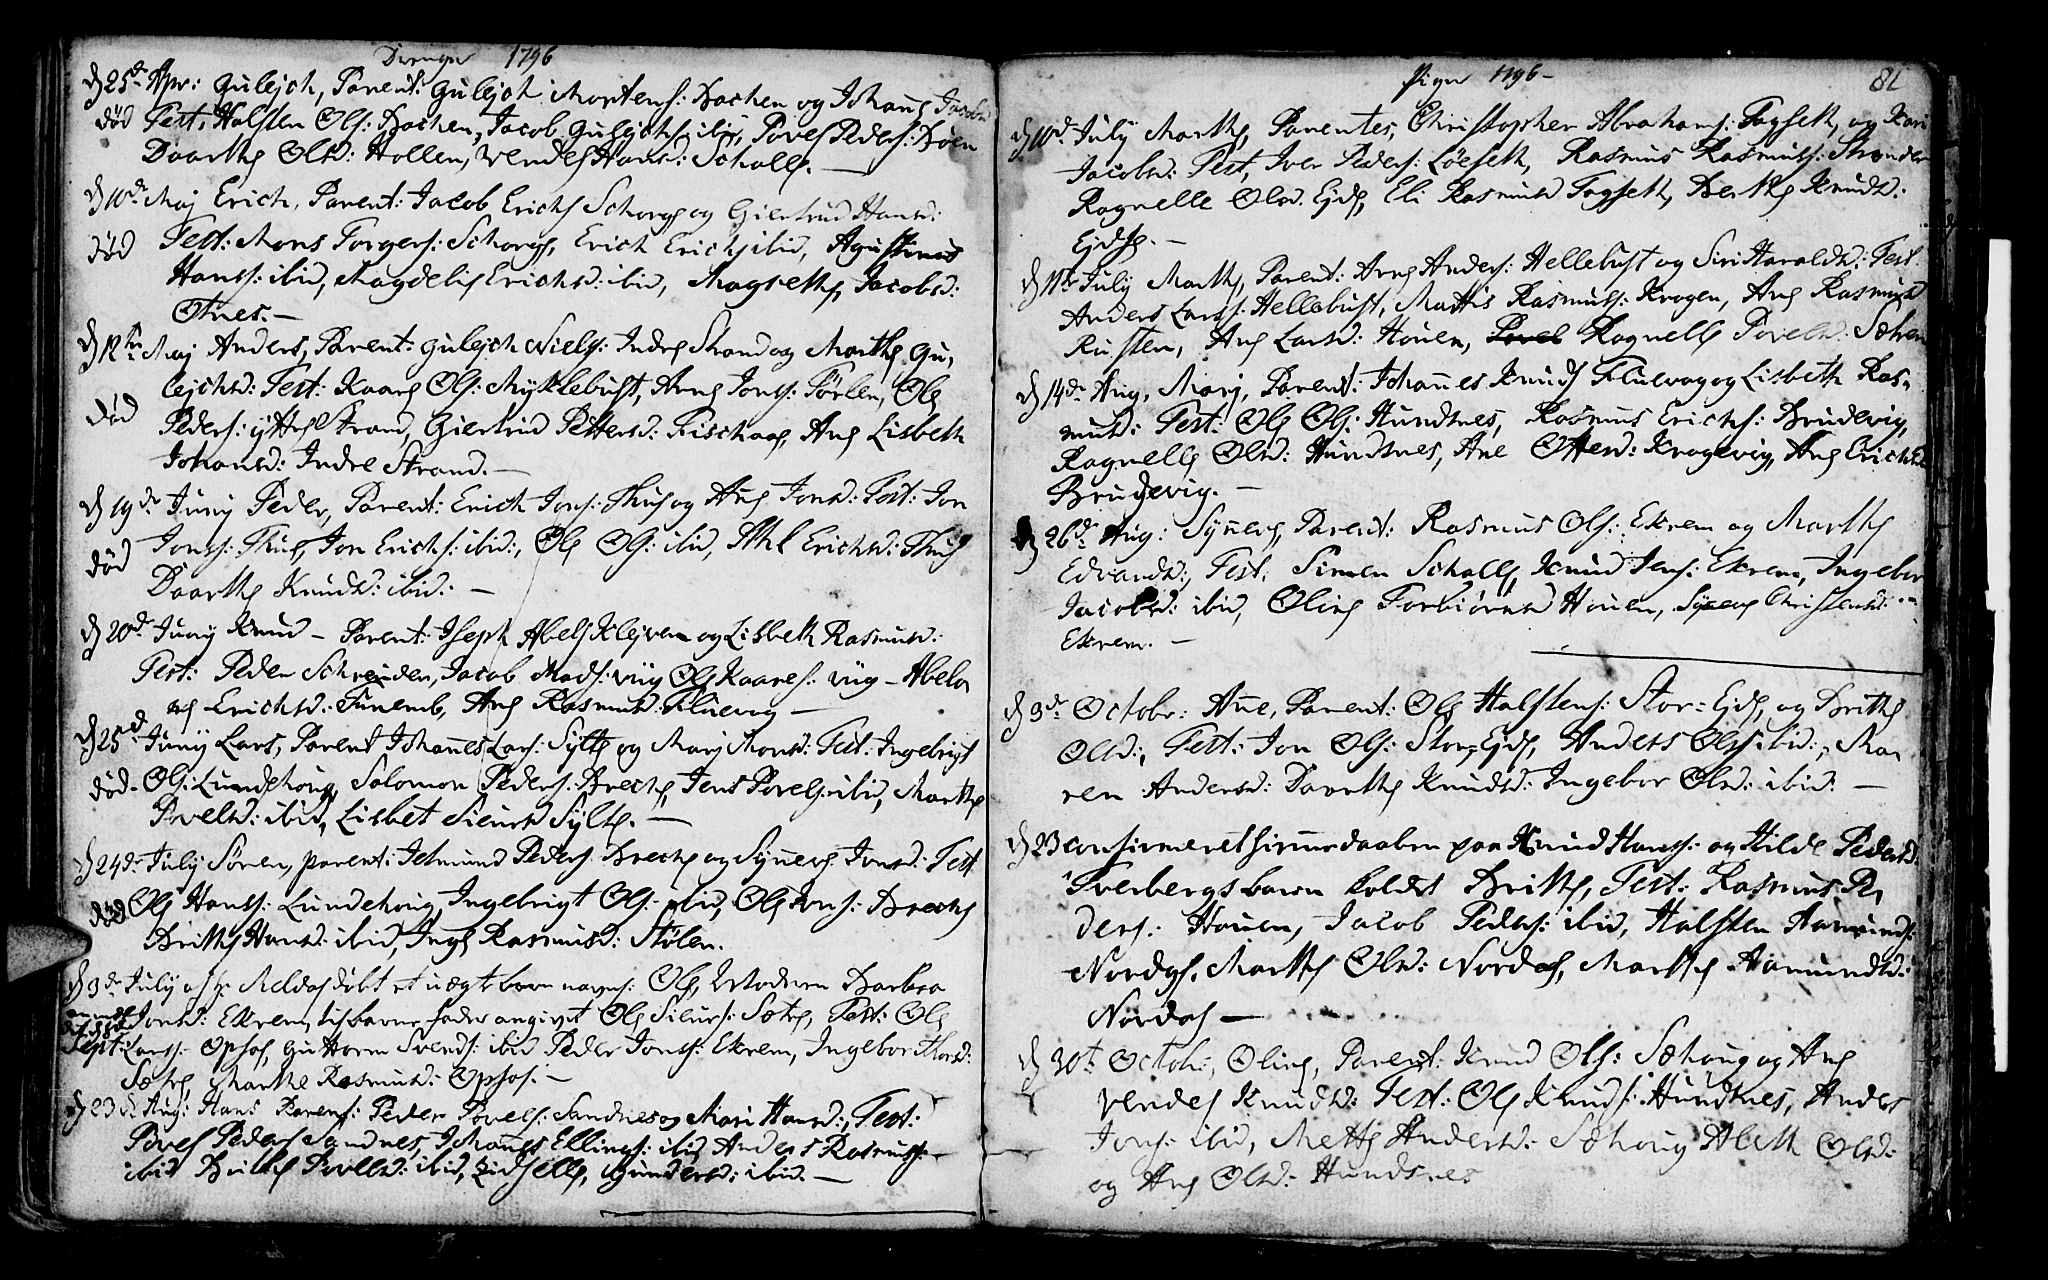 Drenger 1796
d 25de Apr: Gulejch, Parent: Gulejch Mortens: Bachen og Johane Jacobsd
død Test: Halsten Ols: Bachen, Jacob Gulejchs ibid, Povel Peders: Boen
Daarthe Olsd: Hollen, Vendel Hansd: Scholle. —
d 10de Maj Erich, Parent: Jacob Erichs Schorge og Giertrud Hansd:
død Test: Mons Torgers: Schorge, Erich Erichs ibid, Agustinus
Hanss: ibid, Magdeli Erichsd: ibid, Magrethe Jacobsd:
Otnes. —
d 12te Maj Anders, Parent: Gulejch Niels: Indre Strand og Marthe Gu,
lejchsd: Test: Kaare Ols: Myklebust, Arne Jons: Förlen, Ole
død Peders: yttre Strand, Giertrud Pettersd: Fischaae, Ane Lisbeth
Johansd: Indre Strand. —
d 19de Junij Peder, Parent: Erich Jons: Thue og Ane Jonsd: Test: Jon
død Jonss: Thue, Jon Erichs: ibid:, Ole Ols: ibid, Erichsd: Thue
Daarthe Knudsd: ibid: —
d 20de Junij Knud — Parent: Joseph Abels Klejven og Lisbeth Rasmusd:
Test: Peder Schreuder, Jacob Mads: viig Ole Kaares: viig — Abelo
ne Erichsd: Tunemb, Ane Rasmusd: Fluevog —
d 25de Junij Lars, Parent Johannes Lars: Sylte og Marj Monsd: Test: Ingebrigt
død. Ols: Lundehoug, Salomon Peders: Breche, Jens Povels: ibid, Marthe
Povelsd: ibid, Lisbet Siursd Sylte. —
d 24de July Sören, parent: Jetmund Peders Breche og Synneve Jonsd: Test
død Ole Hanss: Lundehoug, Ingebrigt Ols: ibid, Ole Jons: Breche
Britthe Hansd: ibid, Inge Rasmusd: Stölen.
d 3de July af Hr Meldal döbt et uægte barn navnl: Ole, Moderen Barbra
Jonsd: Ekrem, til barne fader angivet Ole Siurs: Sætre, Test: Ole
Sept: Larss: Ophos, Guttorm Svends: ibid Peder Jonss: Ekrem, Ingebor Thorsd:
Sætre, Marthe Rasmusd: Ophos: —
d 23de Aug: Hans Parent: Peder Povels: Sandnes og Mari Hansd:, Test:
Povel Peders Sandnes, Johannes Ellings: ibid Anders Rasmuss:
ibid Povelsd: ibid, Zidselle Gundersd: ibid. —
Piger 1796 —
81
d 10de July Marthe, Parentes, Christopher Abrahams: Fagseth, og Kari
Jacobsd: Test, Iver Peders: Löeseth, Rasmus Rasmuss: Strander
Ragnelle Olsd. Ejde, Eli Rasmusd Fagseth, Berthe Knudsd:
Ejdse. —
d 17de July Marthe, Parent: Arne Anders: Hellebust og Siri Haraldsd: Test.
Anders Larss: Hellebust, Mattis Rasmuss: Krogen, Ane Rasmusd
Rusten, Ane Larsd: Houen, Povel Ragnelle Povelsd: Sæhen
d 14de Aug, Marj, Parent: Johannes Knuds Fluevog og Lisbeth Ras,
musd: Test: Ole Ols: Hundnes, Rasmus Erichs: Brudevig,
Ragnelle Olsd: Hundnes, Ane Ottersd: Krogevig, Ane Erichsd
Brudevig. —
d 26de Aug: Synneve, Parent: Rasmus Ols: Ekrem og Marthe
Edvardsd:, Test: Simen Scholle, Knud Jens: Ekrem, Ingebor
Jacobsd: ibid, Oline Torbiörnsd Houen, Synneve Christensd:
Ekrem. —
d 9de Octobr: Ane, Parent: Ole Halstens: Stor=Ejde, og Britthe
Olsd:, Test: Jon Ols: Stor=Ejde, Anders Olss ibid:, Ma
ren Andersd: Daarthe Knudsd: Ingebor Olsd: ibid: —
d 23 confirmeret hiemmedaaben paa Knud Hanss: og Hilde Pedersd
Tverbergs barn koldet Britthe, Test: Rasmus Pe
ders: Houen, Jacob Peders: ibid, Halsten Aamunds:
Nordal, Marthe Olsd: Nordal, Marthe Aamundsd:
Nordal —
d 30te Octob:, Oline, Parent: Knud Ols: Sæhoug og Ane
Vendel Knudsd: Test: Ole Knuds: Hundnes, Anders
Jons: ibid, Mette Andersd: Sæhoug Abeth Olsd:
og Ane Olsd: Hundsnes